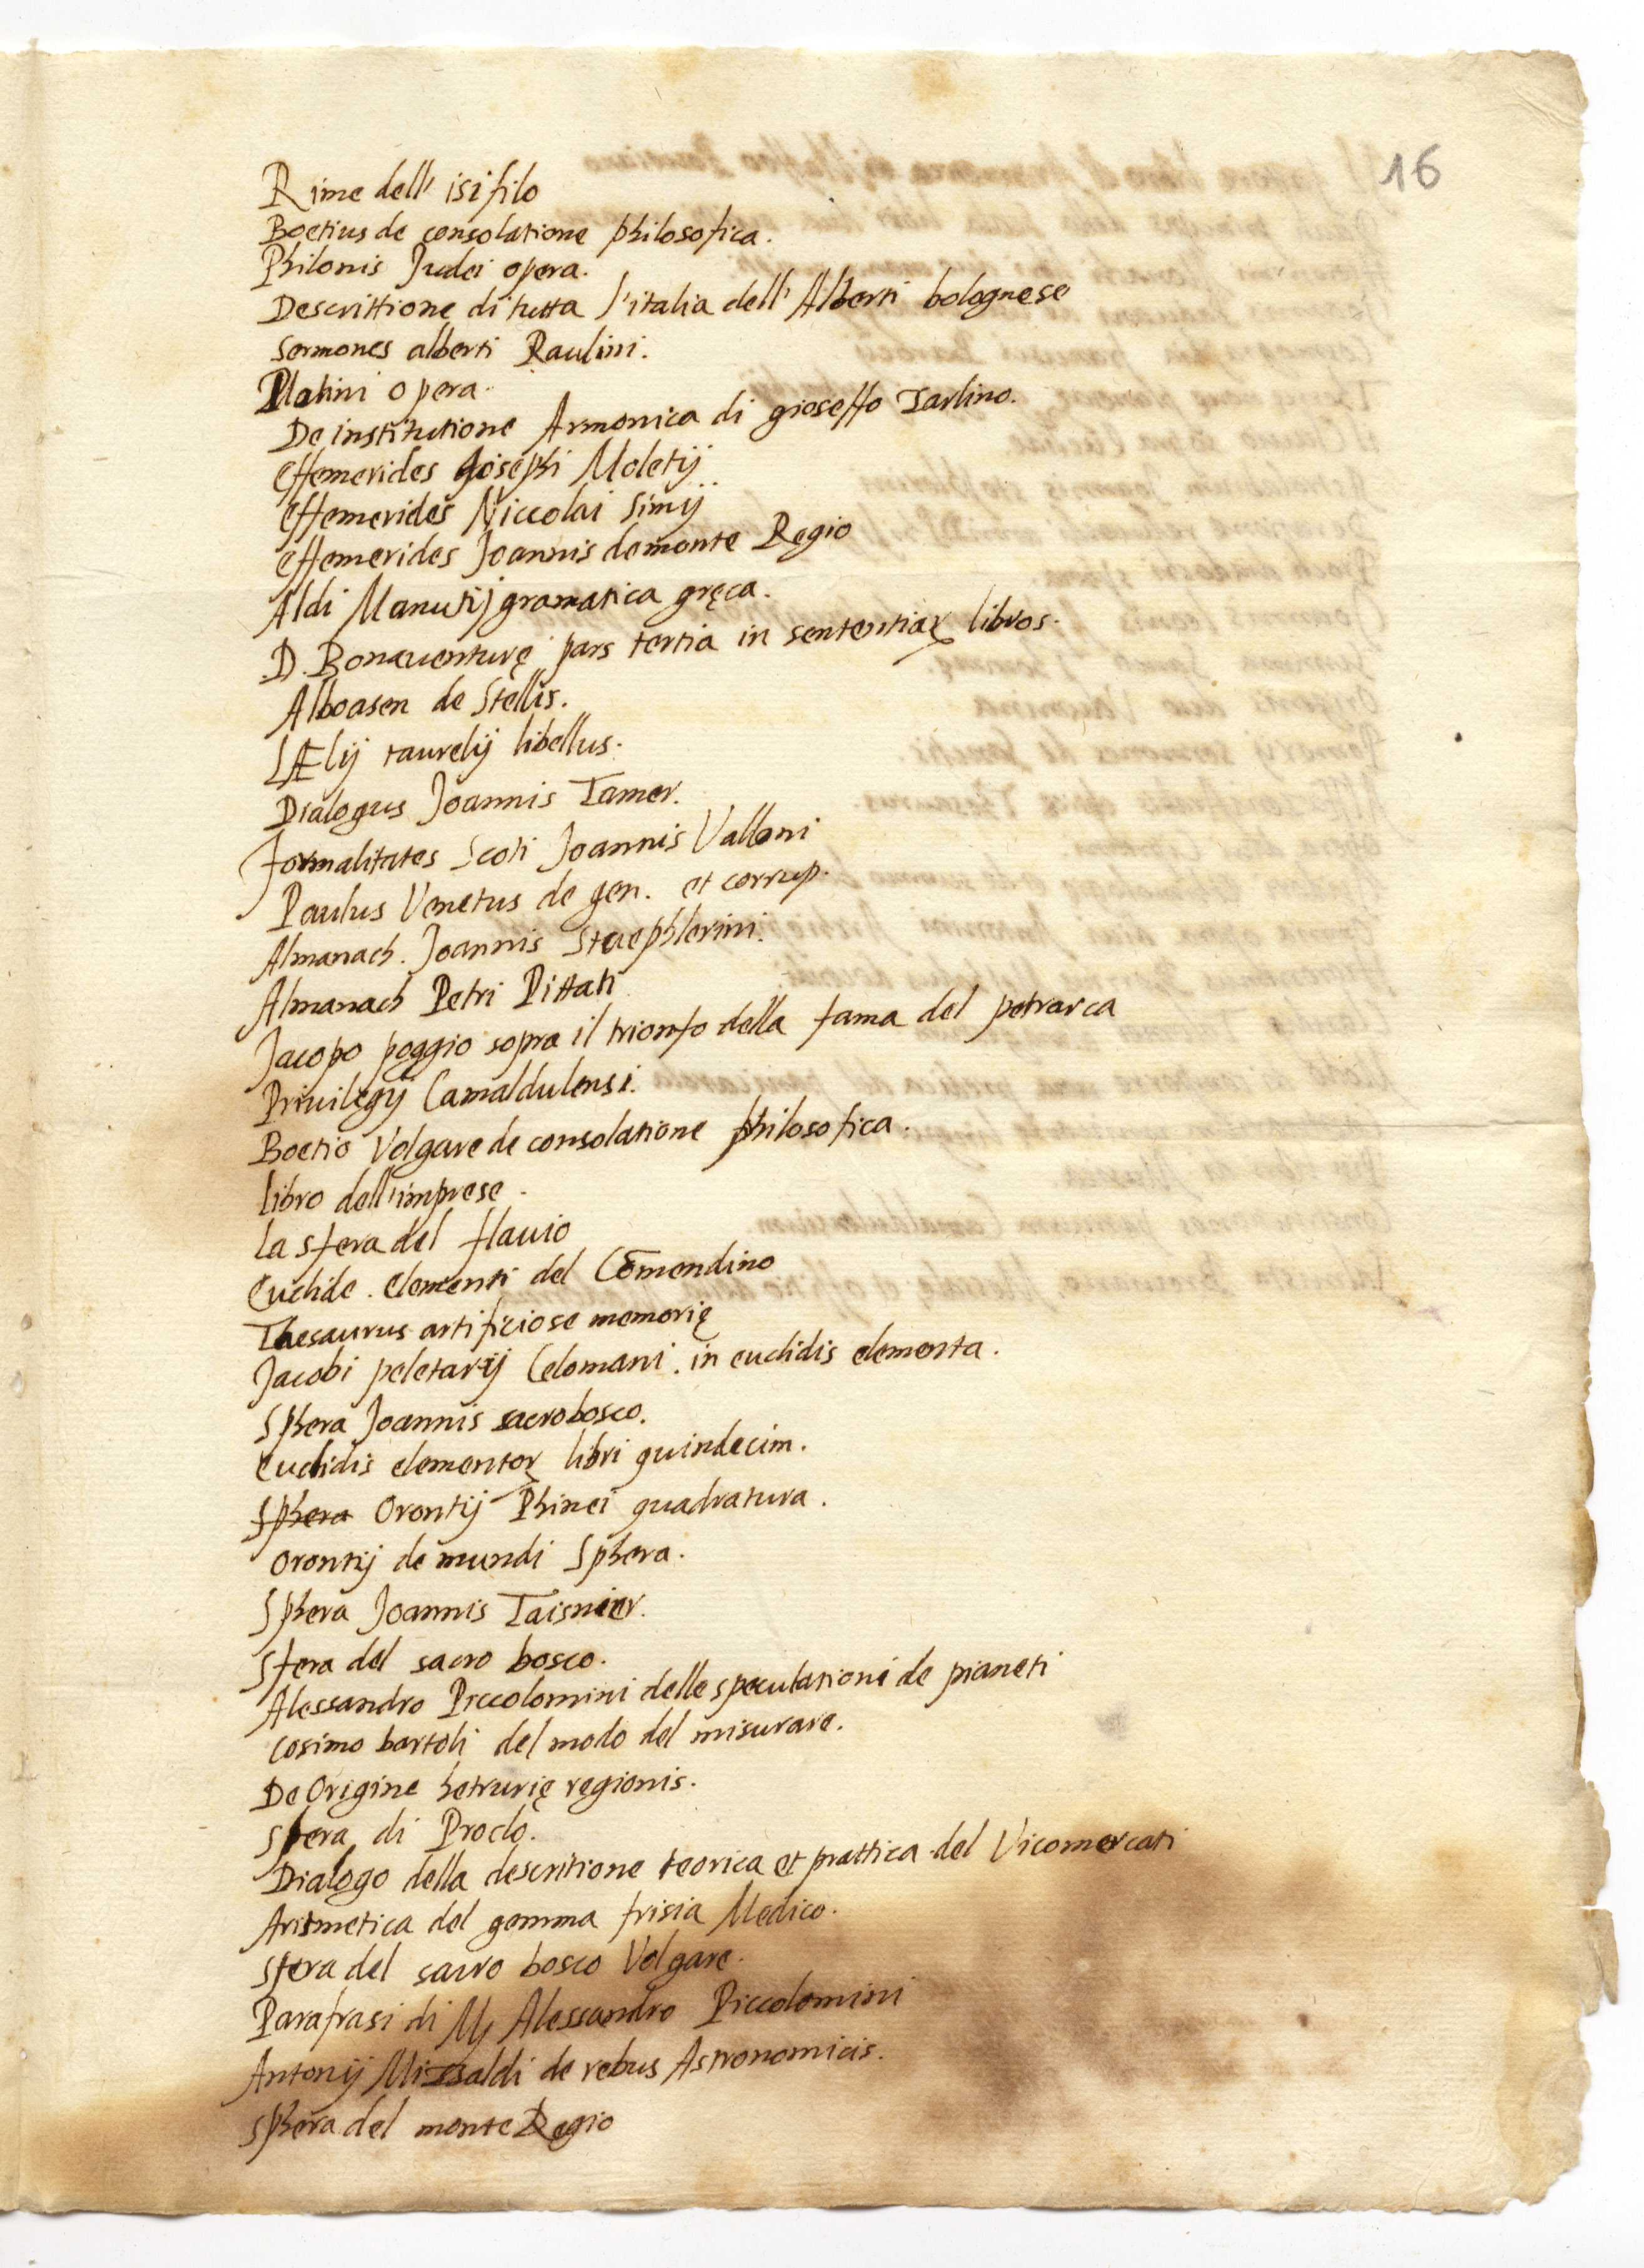 16
Rime dell' isifilo
Boetius de consolatione philosofica.
Philonis Judei opera.
Descrittione di tutta l'italia dell' Alberti bolognese
Sermones alberti Paulini.
Platini opera.
De institutione Armonica di gioseffo Zarlino.
effemerides Josephi Moletij
effemerides Niccolai Simij
effemerides Joannis de monte Regio
Aldi Manutij gramatica gręca.
D. Bonauenturę pars tertia in sententiaꝝ libros.
Alboasen de Stellis.
LÆlij taurelij libellus.
Dialogus Joannis Tamer.
formalitates Scoti Joannis Valloni
Paulus Venetus de gen. et corrup.
Almanach. Joannis Staephlerini.
Almanach Petri Pittati
Jacopo poggio sopra il trionfo della fama del petrarca
Priuilegij Camaldulensi.
Boetio Volgare de consolatione philosofica.
libro dell'imprese.
la sfera del flauio
Euclide. elementi del Comendino
Thesaurus artificiose memorię
Jacobi peletarij Celomani. in euclidis elementa.
Sphera Joannis sacrobosco.
Euclidis elementoꝝ libri quindecim.
Sphera Orontij Phinei quadratura.
orontij de mundi Sphera.
Sphera Joannis Taisnier.
Sfera del sacro bosco.
Alessandro Piccolomini delle speculationi de pianeti
Cosimo bartoli del modo del misurare.
De Origine hetrurię regionis.
sfera di Proclo.
Dialogo della descritione teorica et prattica del Vicomercati
Aritmetica del gemma frisia Medico.
sfera del sacro bosco Volgare.
Parafrasi di M. Alessandro Piccolomini
Antonij Mizzaldi de rebus Astronomicis.
Sphera del monte Regio